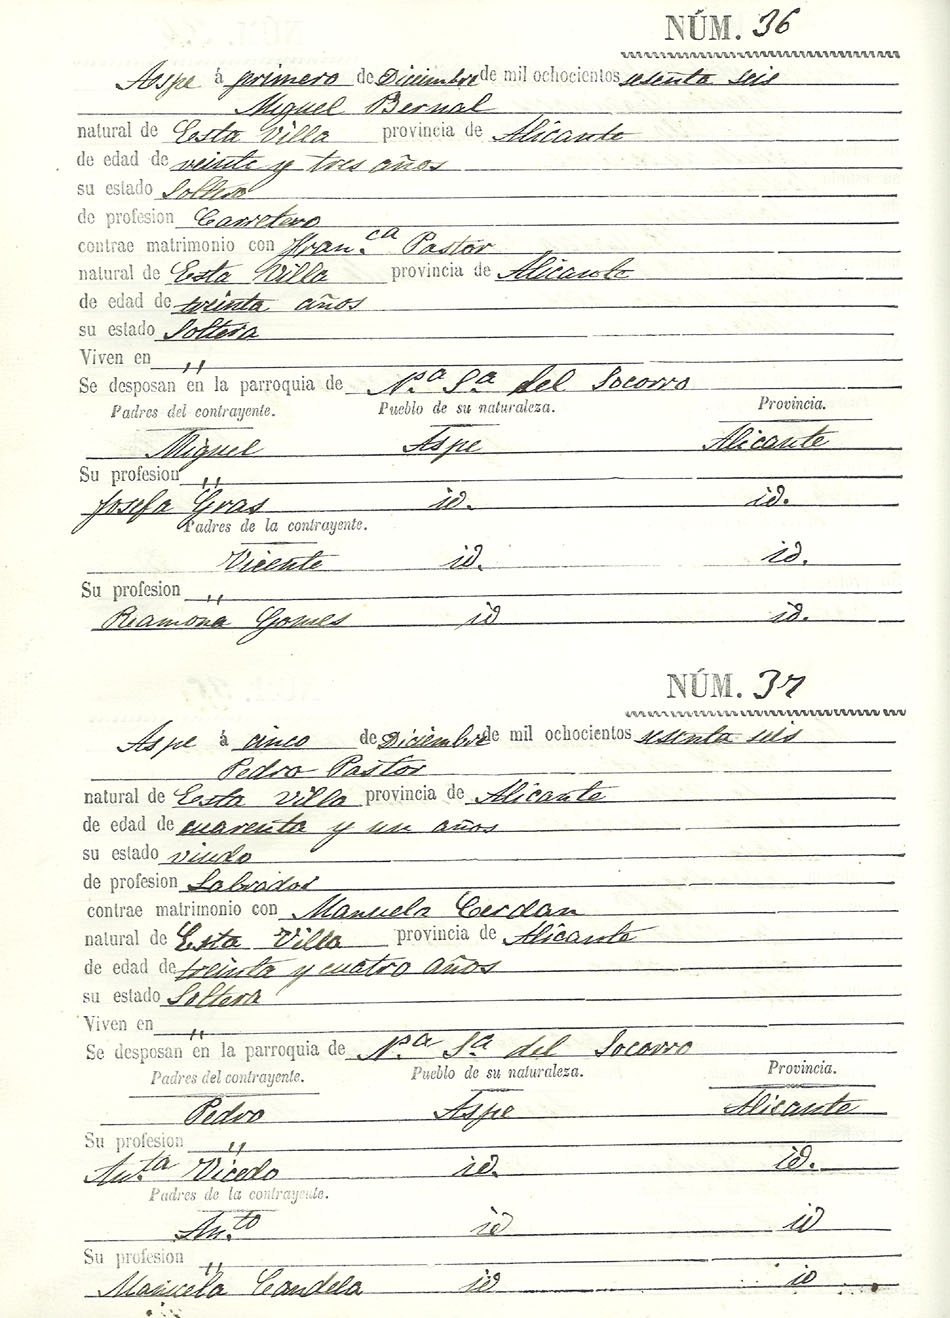 NÚM. 36
Aspe á primero de Diciembre de mil ochocientos sesenta seis
Miguel Bernal
natural de Esta Villa provincia de Alicante
de edad de veinte y tres años
su estado Soltero
de profesion Carretero
contrae matrimonio con Fran.ca Pastor
natural de Esta Villa provincia de Alicante
de edad de treinta años
su estado Soltera
Viven en "
Se desposan en la parroquia de N.a S.a del Socorro
Padres del contrayente. Pueblo de su naturaleza. Provincia.
Miguel Aspe Alicante
Su profesion "
Josefa Gras id. id.
Padres de la contrayente.
Vicente id. id.
Su profesion "
Ramona Gomes id id.
NÚM. 37
Aspe á cinco de Diciembre de mil ochocientos sesenta seis
Pedro Pastor
natural de Esta Villa provincia de Alicante
de edad de cuarenta y un años
su estado viudo
de profesion Labrador
contrae matrimonio con Manuela Cerdan
natural de Esta Villa provincia de Alicante
de edad de treinta y cuatro años
su estado Soltera
Viven en "
Se desposan en la parroquia de N.a S.a del Socorro
Padres del contrayente. Pueblo de su naturaleza. Provincia.
Pedro Aspe Alicante
Su profesion "
An.ta Vicedo id. id.
Padres de la contrayente.
An.to id id
Su profesion "
Manuela Candela id id